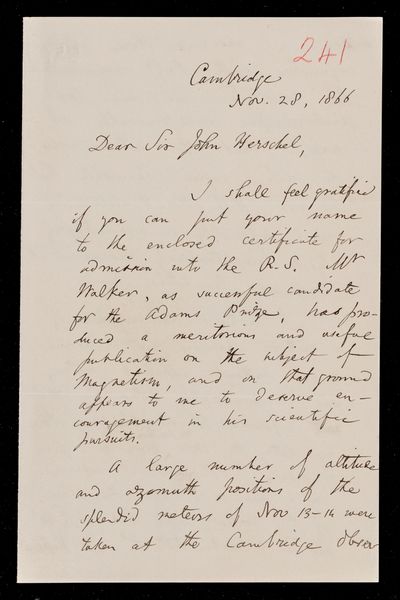 241
Cambridge
Nov. 28, 1866
Dear Sir John Herschel,
I shall feel gratified
if you can put your name
to the enclosed certificate for
admission into the R.S. Mr
Walker, as successful candidate
for the Adams Prize, has pro-
duced a meritorious and useful
publication on the subject of
Magnetism, and on that ground
appears to me to deserve en-
couragement in his scientific
pursuits.
A large number of altitude
and azimuth positions of the
splendid meteors of Nov 13-14 were
taken at the Cambridge Obser